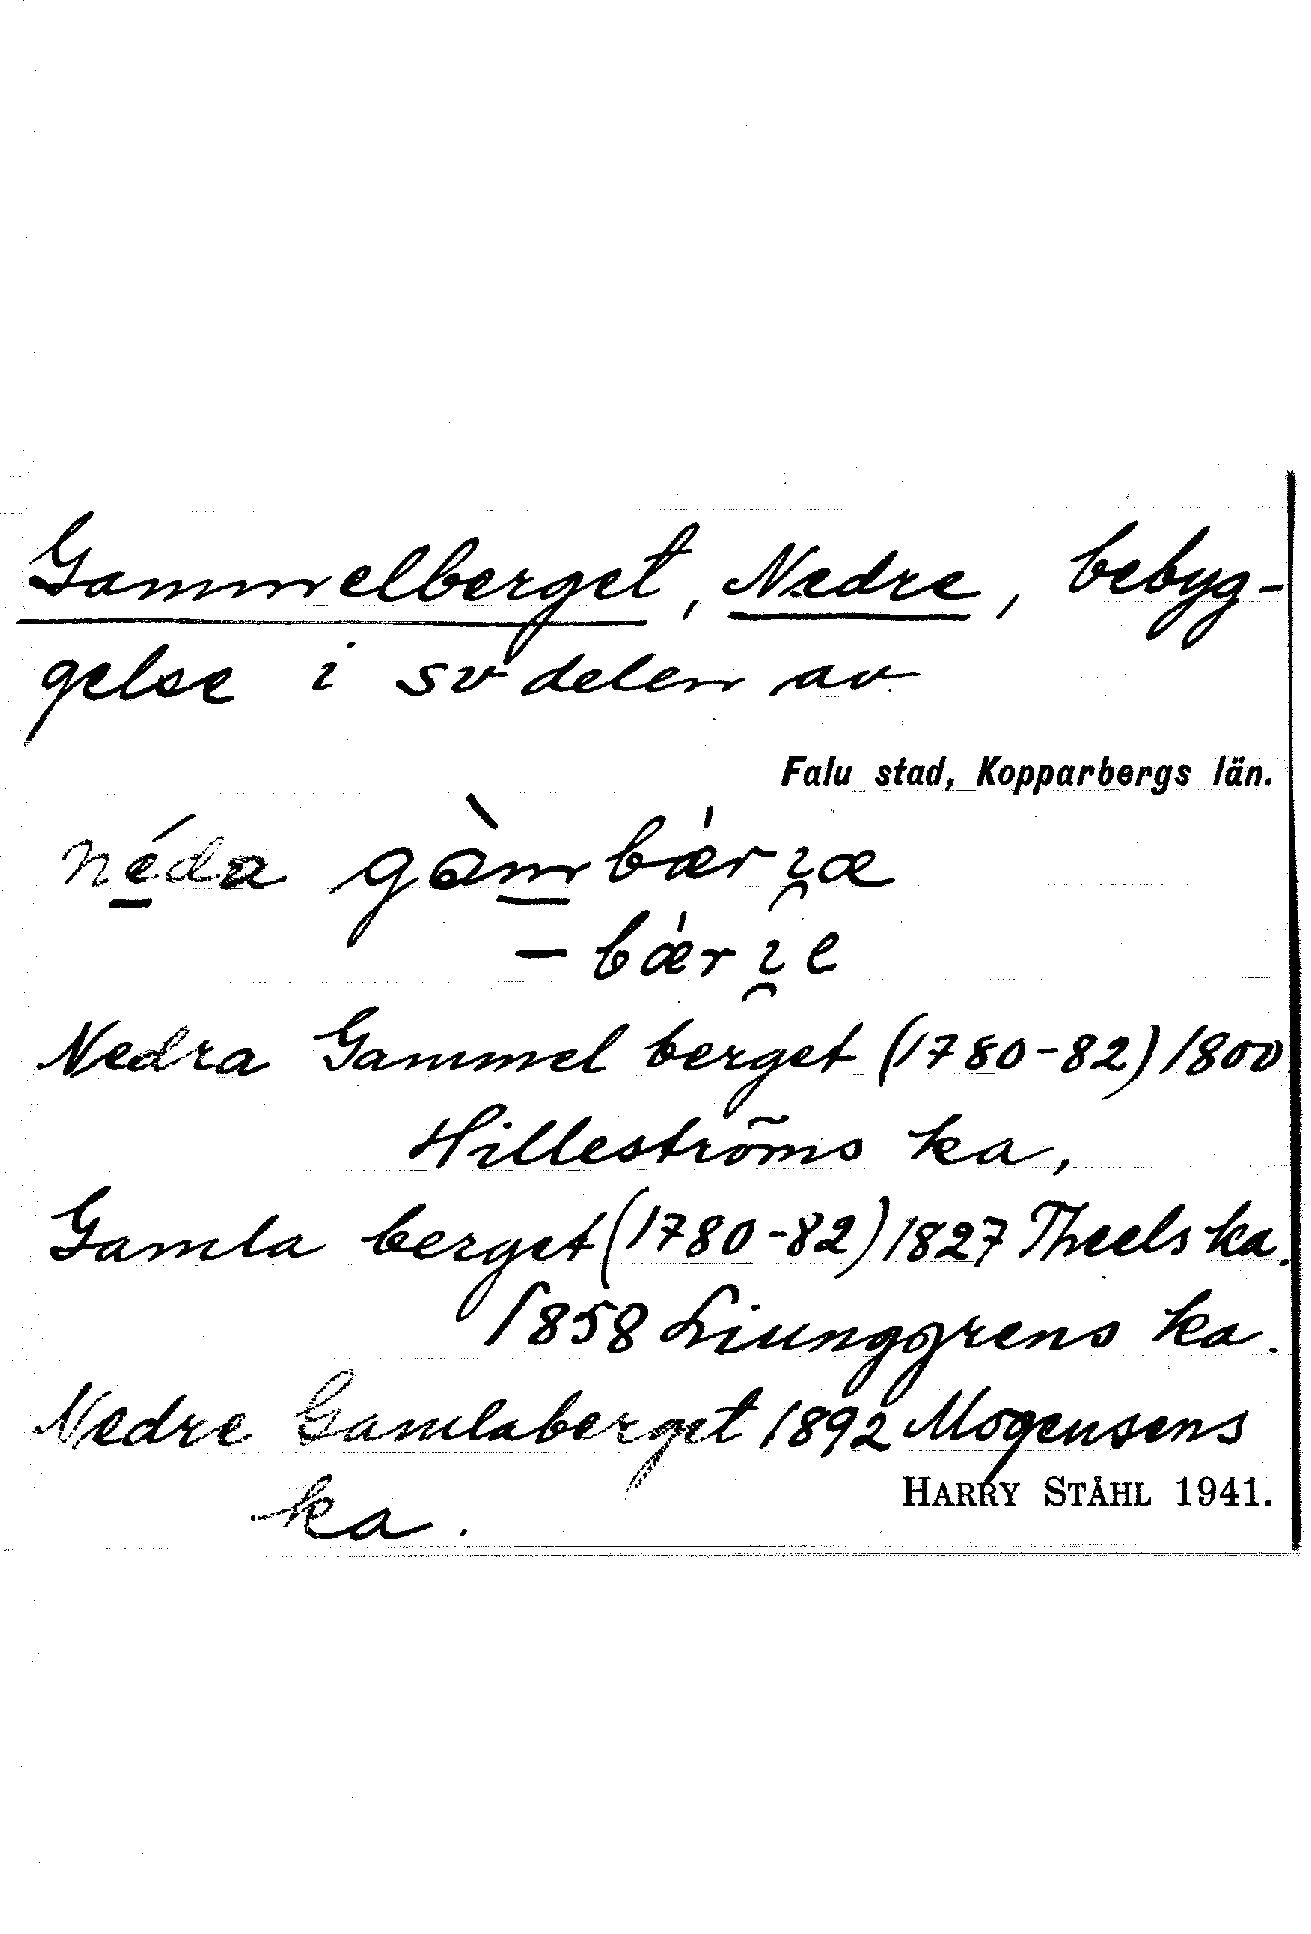 Gammelberget, Nedre, bebyg-
gelse i sv delen av
Falu stad, Kopparbergs län.
néda gàmbærı̯æ
- bærı̯e
Nedra Gammel berget (1780-82) 1800
Hilleströms ka,
Gamla berget (1780-82) 1827 Theels ka.
1858 Liunggrens ka.
Nedre Gamlaberget 1892 Mogensens
ka.
HARRY STÅHL 1941.